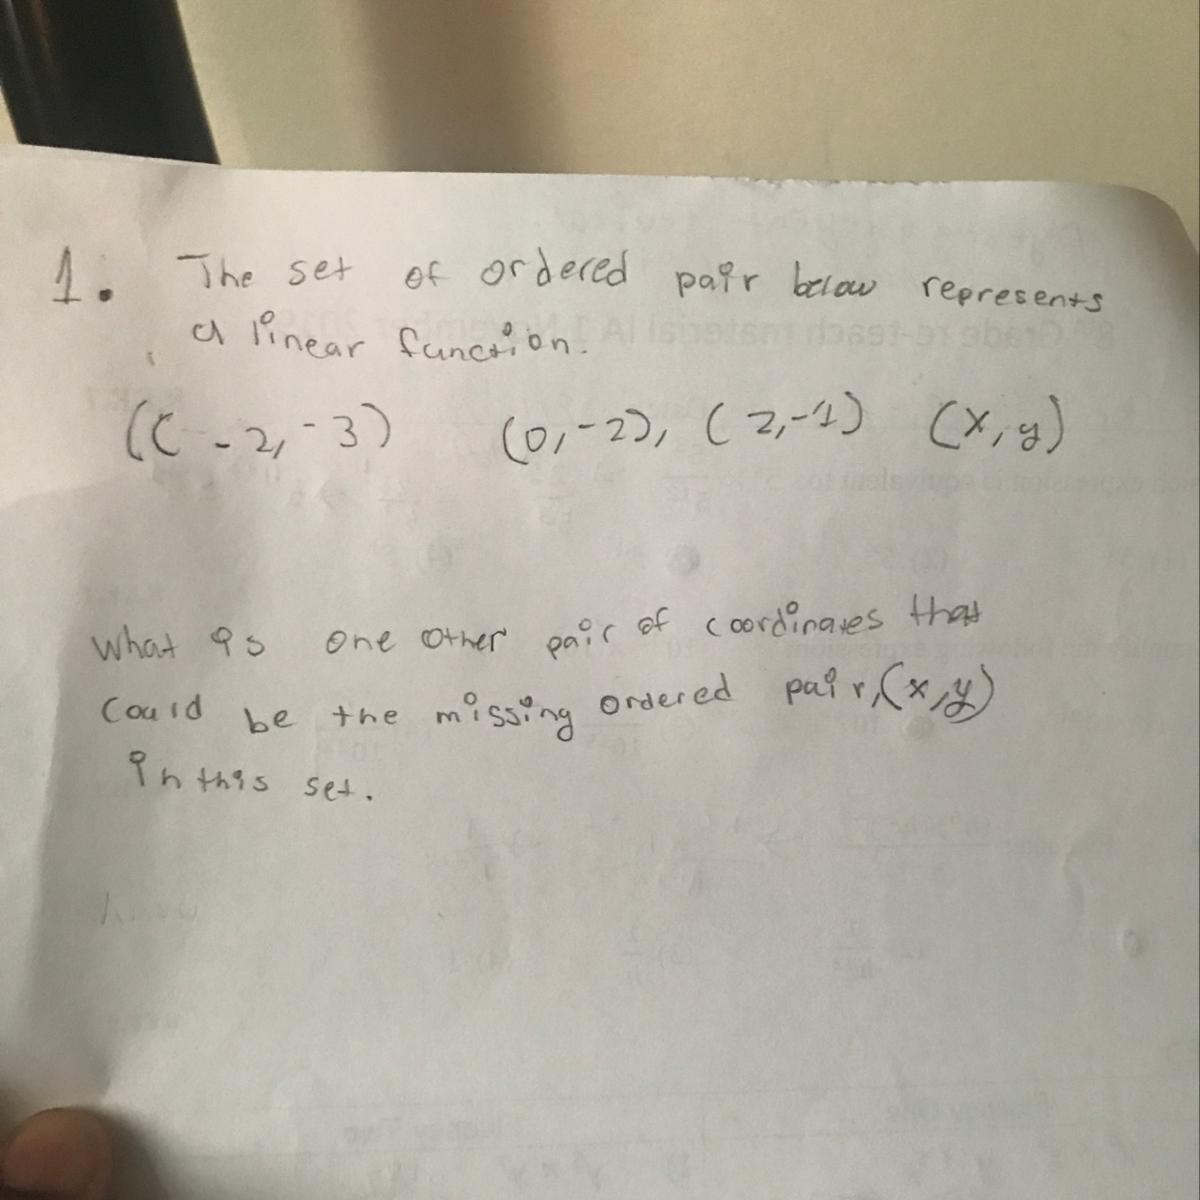 1. The set of ordered pair below represents
a linear function.
((-2,-3) (0,-2), (2,-1) (x,y)
What is one other pair of coordinates that
Could be the missing ordered pair,(x,y)
in this set.